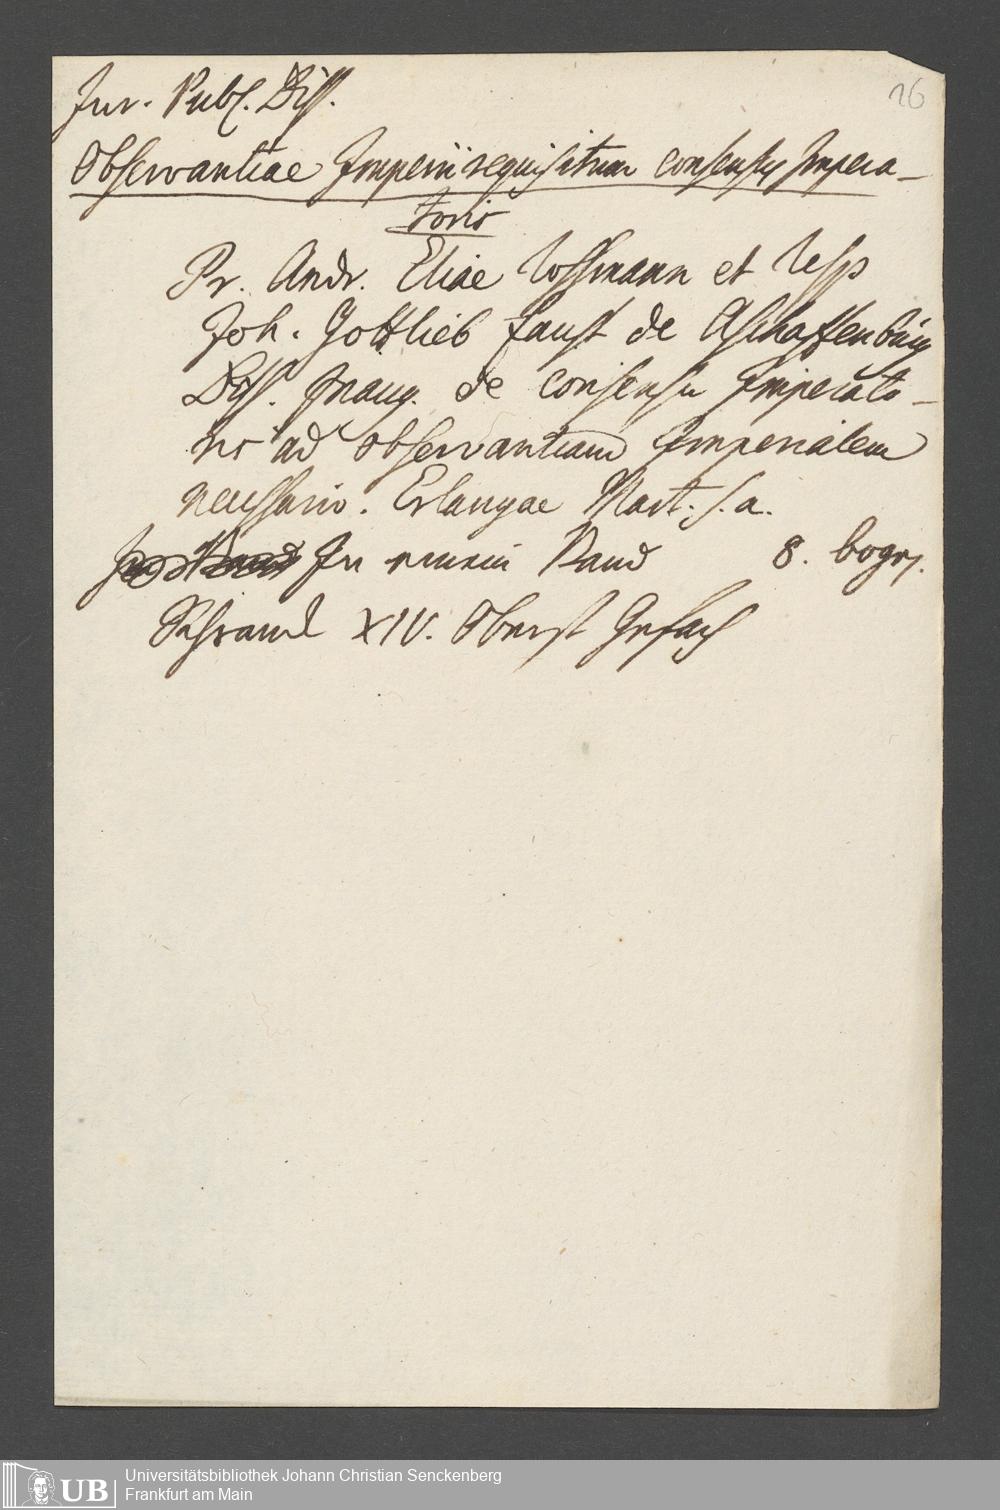 Jur. Publ. Diss.
16
Observantiae Imperii requisitum consensus Impera-
toris
Pr. Andr. Eliae Rossmann et Resp
Joh. Gottlieb Faust de Aschaffenburg
Diss. Inaug. de consensu Imperato-
ris ad observantiam Imperialem
necessario. Erlangae Mart. s. a.
In einem Band 8. bogen.
Schranck XIV. Oberst Gefach
UB Universitätsbibliothek Johann Christian Senckenberg
Frankfurt am Main